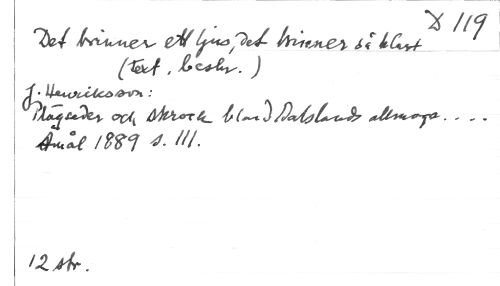 D 119
Det brinner ett ljus, det brinner så klart
(text, beskr.)
J. Henriksson:
Plägseder och skrock bland Dalslands allmoge....
Åmål 1889 s. 111.
12 str.